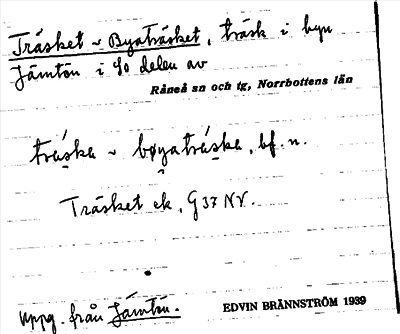 Träsket ~ Byaträsket, träsk i byn
Jämtön i SO delen av
Råneå sn och tg, Norrbottens län
träska ~ bøyaträska, bf. n.
Träsket ek, G 37 NV.
Uppg. från Jämtön.
EDVIN BRÄNNSTRÖM 1939